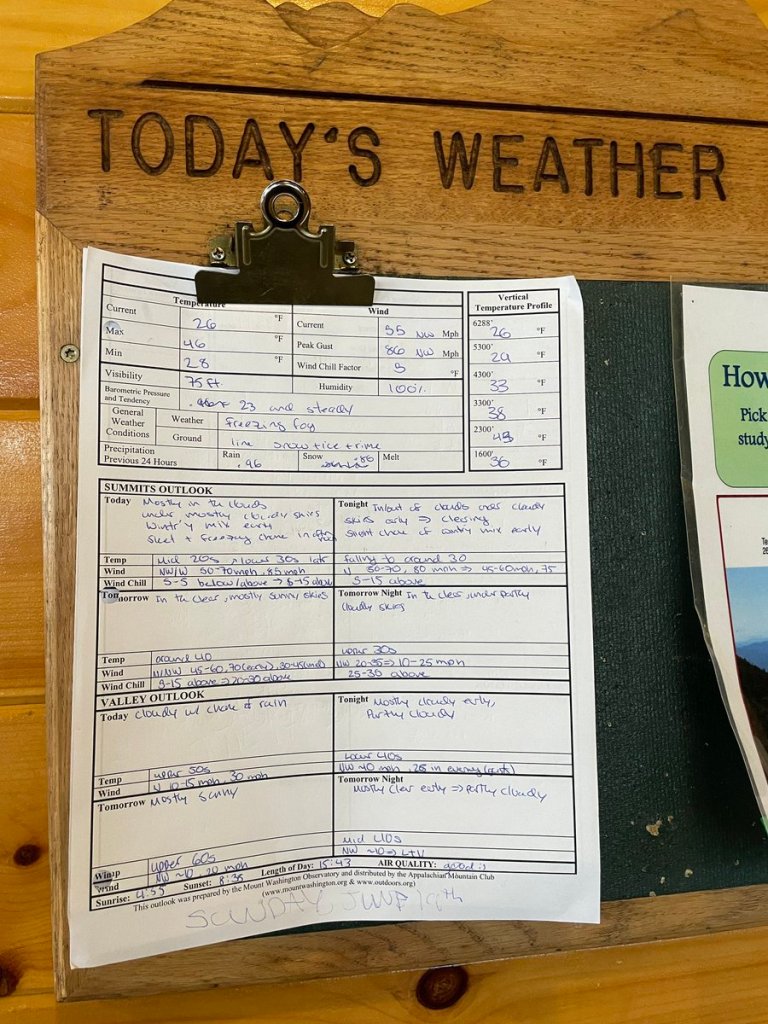 TODAY'S WEATHER
Temperature
Wind
Vertical
Temperature Profile
Current 26 °F
Current 55 NW Mph
6288' 26 °F
Max 46 °F
Peak Gust 86 NW Mph
5300' 29 °F
Min 28 °F
Wind Chill Factor 5 °F
4300' 33 °F
Visibility 75 ft.
Humidity 100%
3300' 38 °F
Barometric Pressure
and Tendency 23 and steady
2300' 43 °F
General
Weather
Conditions
Weather freezing fog
Ground snow + ice + rime
1600' 36 °F
Precipitation
Previous 24 Hours
Rain .96
Snow
Melt
SUMMITS OUTLOOK
Today Mostly in the clouds
under mostly cloudy skies
Wintr'y mix early
Sleet + freezing chance in
Tonight In/out of clouds under cloudy
skies early => clearing
slight chance of wintry mix early
Temp Mid 20s, lower 30s late
falling to around 30
Wind NW/W 50-70mph, 85mph
N 50-70, 80 mph => 45-60mph, 75
Wind Chill 5-5 below/above => 5-15 above
5-15 above
Tomorrow In the clear, mostly sunny skies
Tomorrow Night In the clear, under partly
cloudy skies
Temp around 40
upper 30s
Wind N/NW 45-60, 70 (early), 30-45 (mid)
NW 20-35 => 10-25 mph
Wind Chill 5-15 above => 20-30 above
25-35 above
VALLEY OUTLOOK
Today Cloudy w/ chance of rain
Tonight Mostly cloudy early,
Partly cloudy
Temp upper 50s
lower 40s
Wind N 10-15 mph, 30 mph
NW ~10 mph, 25 in evening (gusts)
Tomorrow Mostly Sunny
Tomorrow Night
Mostly clear early => partly cloudy
upper 60s
Mid 40s
Wind NW ~10, 20 mph
NW ~10 => L+V
Sunrise: 4:55 Sunset: 8:38 Length of Day: 15:43 AIR QUALITY: good :)
This outlook was prepared by the Mount Washington Observatory and distributed by the Appalachian Mountain Club
(www.mountwashington.org & www.outdoors.org)
SUNDAY JUNE 19th
How
Pick
study